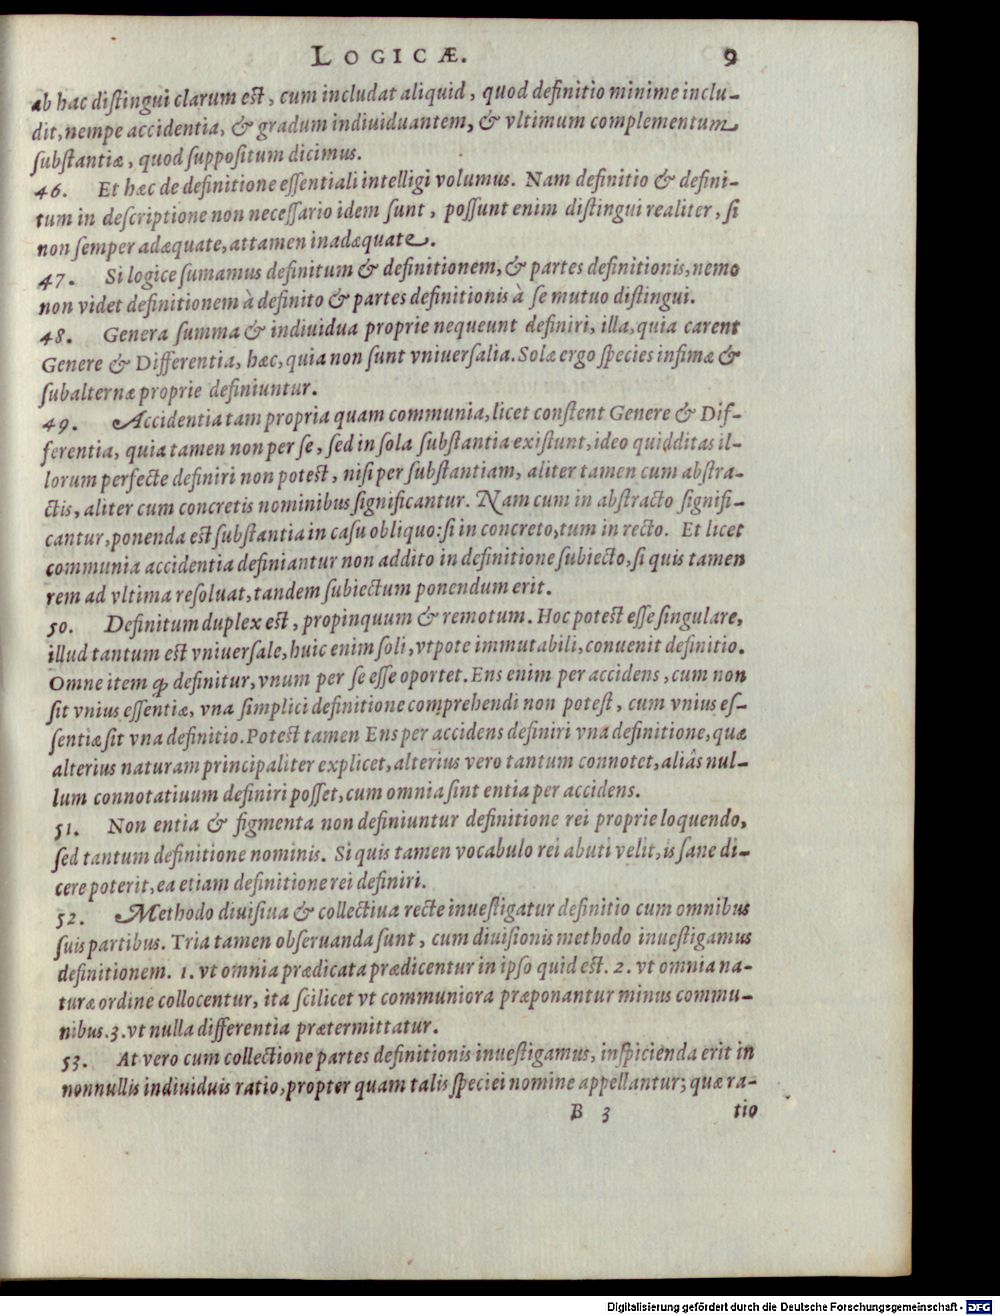 LOGICÆ. 9
ab hac distingui clarum est, cum includat aliquid, quod definitio minime inclu-
dit, nempe accidentia, & gradum indiuiduantem, & vltimum complementum
substantiæ, quod suppositum dicimus.
46. Et hæc de definitione essentiali intelligi volumus. Nam definitio & defini-
tum in descriptione non necessario idem sunt, possunt enim distingui realiter, si
non semper adæquate, attamen inadæquate.
47. Si logice sumamus definitum & definitionem, & partes definitionis, nemo
non videt definitionem à definito & partes definitionis à se mutuo distingui.
48. Genera summa & indiuidua proprie nequeunt definiri, illa, quia carent
Genere & Differentia, hæc, quia non sunt vniuersalia. Solæ ergo species infimæ &
subalternæ proprie definiuntur.
49. Accidentia tam propria quam communia, licet constent Genere & Dif-
ferentia, quia tamen non per se, sed in sola substantia existunt, ideo quidditas il-
lorum perfecte definiri non potest, nisi per substantiam, aliter tamen cum abstra-
ctis, aliter cum concretis nominibus significantur. Nam cum in abstracto signifi-
cantur, ponenda est substantia in casu obliquo: si in concreto, tum in recto. Et licet
communia accidentia definiantur non addito in definitione subiecto, si quis tamen
rem ad vltima resoluat, tandem subiectum ponendum erit.
50. Definitum duplex est, propinquum & remotum. Hoc potest esse singulare,
illud tantum est vniuersale, huic enim soli, vtpote immutabili, conuenit definitio.
Omne item ꝙ definitur, vnum per se esse oportet. Ens enim per accidens, cum non
sit vnius essentiæ, vna simplici definitione comprehendi non potest, cum vnius es-
sentiæ sit vna definitio. Potest tamen Ens per accidens definiri vna definitione, quæ
alterius naturam principaliter explicet, alterius vero tantum connotet, aliâs nul-
lum connotatiuum definiri posset, cum omnia sint entia per accidens.
51. Non entia & figmenta non definiuntur definitione rei proprie loquendo,
sed tantum definitione nominis. Si quis tamen vocabulo rei abuti velit, is sane di-
cere poterit, ea etiam definitione rei definiri.
52. Methodo diuisiua & collectiua recte inuestigatur definitio cum omnibus
suis partibus. Tria tamen obseruanda sunt, cum diuisionis methodo inuestigamus
definitionem. 1. vt omnia prædicata prædicentur in ipso quid est. 2. vt omnia na-
turæ ordine collocentur, ita scilicet vt communiora præponantur minus commu-
nibus. 3. vt nulla differentia prætermittatur.
53. At vero cum collectione partes definitionis inuestigamus, inspicienda erit in
nonnullis indiuiduis ratio, propter quam talis speciei nomine appellantur; quæ ra-
B 3 tio
Digitalisierung gefördert durch die Deutsche Forschungsgemeinschaft - DFG